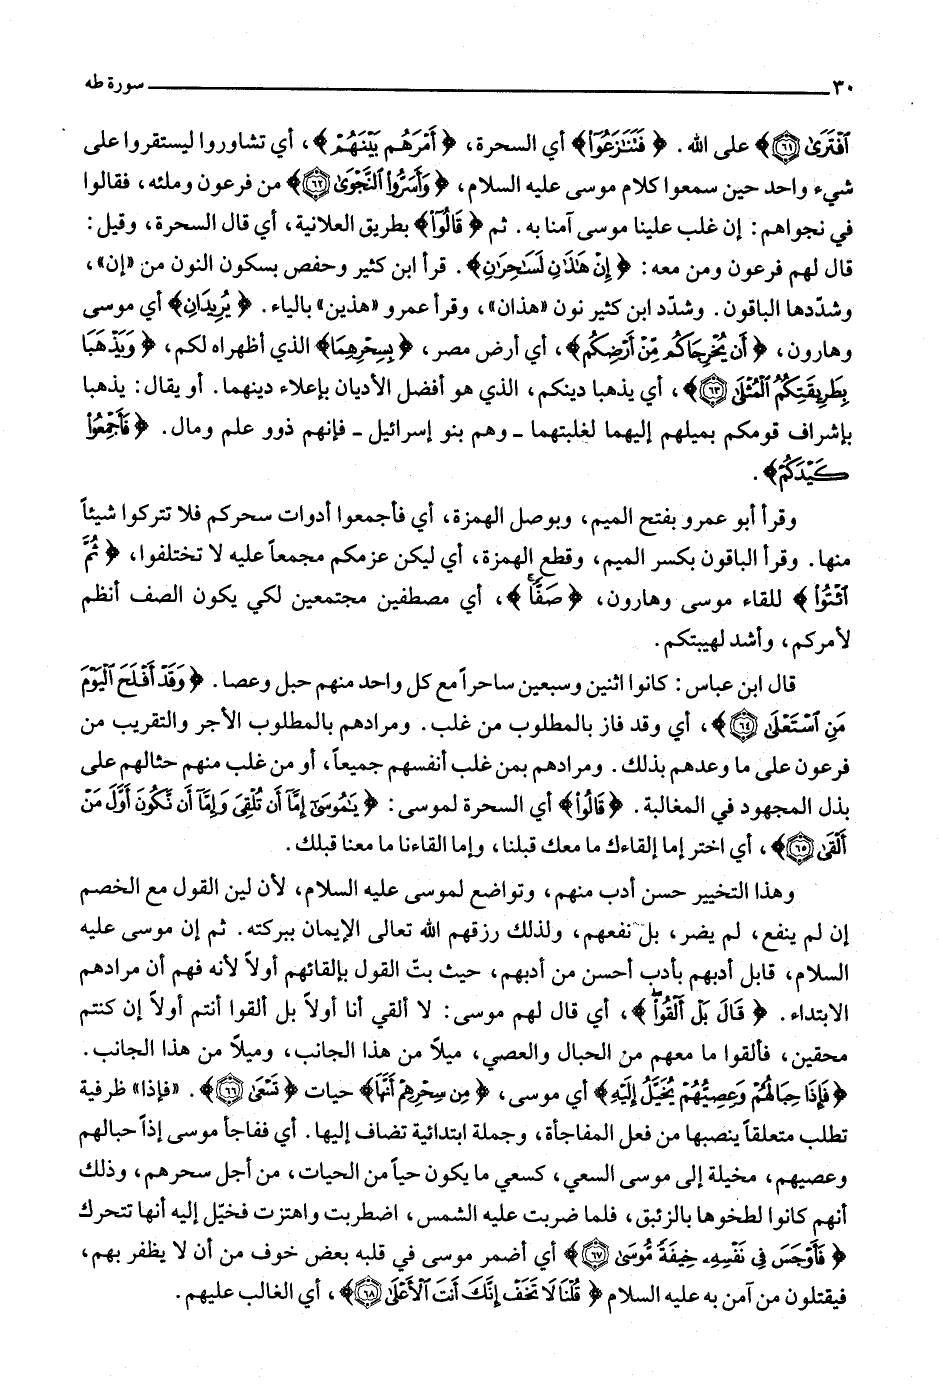 ٣٠ سورة طه
ٱفْتَرَىٰ ﴿٦١﴾ على الله. ﴿فَتَنَـٰزَعُوٓا۟﴾ أي السحرة، ﴿أَمْرَهُم بَيْنَهُمْ﴾، أي تشاوروا ليستقروا على
شيء واحد حين سمعوا كلام موسى عليه السلام، ﴿وَأَسَرُّوا۟ ٱلنَّجْوَىٰ ﴿٦٢﴾﴾ من فرعون وملئه، فقالوا
في نجواهم: إن غلب علينا موسى آمنا به. ثم ﴿قَالُوٓا۟﴾ بطريق العلانية، أي قال السحرة، وقيل:
قال لهم فرعون ومن معه: ﴿إِنْ هَـٰذَٰنِ لَسَـٰحِرَٰنِ﴾. قرأ ابن كثير وحفص بسكون النون من «إن»،
وشدّدها الباقون. وشدّد ابن كثير نون «هذان»، وقرأ عمرو «هذين» بالياء. ﴿يُرِيدَانِ﴾ أي موسى
وهارون، ﴿أَن يُخْرِجَاكُم مِّنْ أَرْضِكُم﴾، أي أرض مصر، ﴿بِسِحْرِهِمَا﴾ الذي أظهراه لكم، ﴿وَيَذْهَبَا
بِطَرِيقَتِكُمُ ٱلْمُثْلَىٰ ﴿٦٣﴾﴾، أي يذهبا دينكم، الذي هو أفضل الأديان بإعلاء دينهما. أو يقال: يذهبا
بإشراف قومكم بميلهم إليهما لغلبتهما ـ وهم بنو إسرائيل ـ فإنهم ذوو علم ومال. ﴿فَأَجْمِعُوا۟
كَيْدَكُمْ﴾.
وقرأ أبو عمرو بفتح الميم، وبوصل الهمزة، أي فأجمعوا أدوات سحركم فلا تتركوا شيئاً
منها. وقرأ الباقون بكسر الميم، وقطع الهمزة، أي ليكن عزمكم مجمعاً عليه لا تختلفوا، ﴿ثُمَّ
ٱئْتُوا۟﴾ للقاء موسى وهارون، ﴿صَفًّاۚ﴾، أي مصطفين مجتمعين لكي يكون الصف أنظم
لأمركم، وأشد لهيبتكم.
قال ابن عباس: كانوا اثنين وسبعين ساحراً مع كل واحد منهم حبل وعصا. ﴿وَقَدْ أَفْلَحَ ٱلْيَوْمَ
مَنِ ٱسْتَعْلَىٰ ﴿٦٤﴾﴾، أي وقد فاز بالمطلوب من غلب. ومرادهم بالمطلوب الأجر والتقريب من
فرعون على ما وعدهم بذلك. ومرادهم بمن غلب أنفسهم جميعاً، أو من غلب منهم حثالهم على
بذل المجهود في المغالبة. ﴿قَالُوا۟﴾ أي السحرة لموسى: ﴿يَـٰمُوسَىٰٓ إِمَّآ أَن تُلْقِىَ وَإِمَّآ أَن نَّكُونَ أَوَّلَ مَنْ
أَلْقَىٰ ﴿٦٥﴾﴾، أي اختر إما إلقاءك ما معك قبلنا، وإما القاءنا ما معنا قبلك.
وهذا التخيير حسن أدب منهم، وتواضع لموسى عليه السلام، لأن لين القول مع الخصم
إن لم ينفع، لم يضر، بل نفعهم، ولذلك رزقهم الله تعالى الإيمان ببركته. ثم إن موسى عليه
السلام، قابل أدبهم بأدب أحسن من أدبهم، حيث بتّ القول بإلقائهم أولاً لأنه فهم أن مرادهم
الابتداء. ﴿قَالَ بَلْ أَلْقُوا۟ۖ﴾، أي قال لهم موسى: لا ألقي أنا أولاً بل ألقوا أنتم أولاً إن كنتم
محقين، فألقوا ما معهم من الحبال والعصي، ميلاً من هذا الجانب، وميلاً من هذا الجانب.
﴿فَإِذَا حِبَالُهُمْ وَعِصِيُّهُمْ يُخَيَّلُ إِلَيْهِ﴾ أي موسى، ﴿مِن سِحْرِهِمْ أَنَّهَا﴾ حيات ﴿تَسْعَىٰ ﴿٦٦﴾﴾. «فإذا» ظرفية
تطلب متعلقاً ينصبها من فعل المفاجأة، وجملة ابتدائية تضاف إليها. أي ففاجأ موسى إذاً حبالهم
وعصيهم، مخيلة إلى موسى السعي، كسعي ما يكون حياً من الحيات، من أجل سحرهم، وذلك
أنهم كانوا لطخوها بالزئبق، فلما ضربت عليه الشمس، اضطربت واهتزت فخيّل إليه أنها تتحرك
﴿فَأَوْجَسَ فِى نَفْسِهِۦ خِيفَةً مُّوسَىٰ ﴿٦٧﴾﴾ أي أضمر موسى في قلبه بعض خوف من أن لا يظفر بهم،
فيقتلون من آمن به عليه السلام ﴿قُلْنَا لَا تَخَفْ إِنَّكَ أَنتَ ٱلْأَعْلَىٰ ﴿٦٨﴾﴾، أي الغالب عليهم.